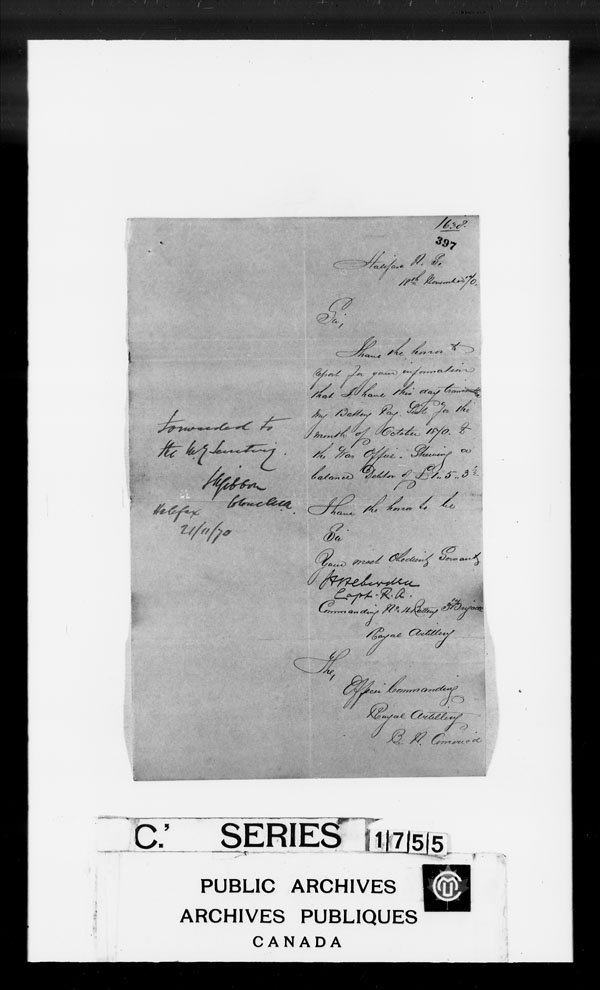 1638.
397
Halifax N. S.
18th November /70.
Sir,
I have the honor to
report for your information
that I have this day transmitted
my Battery Pay List for the
month of October 1870. to
the War Office. Shewing a
balance Debtor of £1-5-3
I have the honor to be
Sir
Your most Obedient Servant
Capt. R.A.
Commanding No 4 Battery Brigade
Royal Artillery
The,
Officer Commanding
Royal Artillery
B. N. America
Forwarded to
the Secretary.
Gibbon
Colonel R.A.
Halifax
21/11/70
C.' SERIES 1755
PUBLIC ARCHIVES
ARCHIVES PUBLIQUES
CANADA